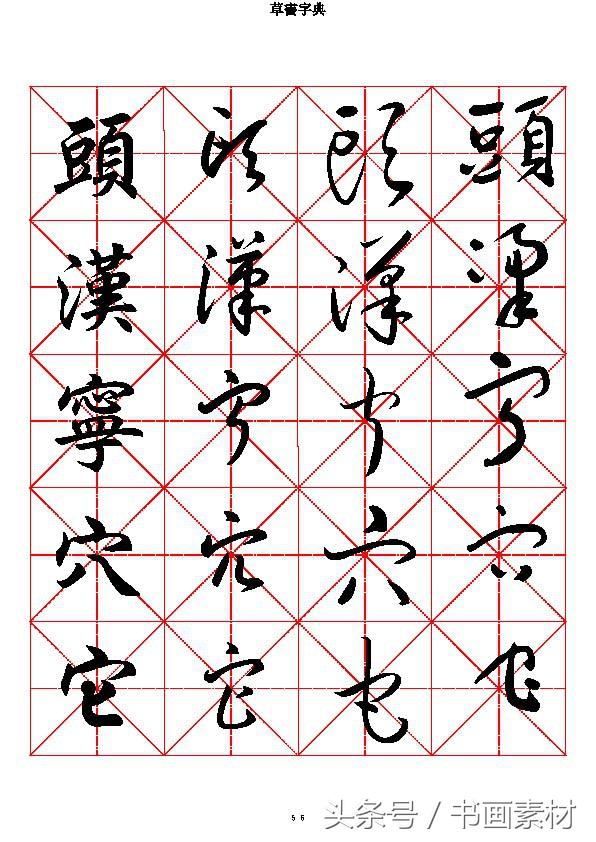 草書字典
頭 頭 頭 頭
漢 漢 漢 漢
寧 寧 寧 寧
穴 穴 穴 穴
它 它 它 它
56
头条号 / 书画素材